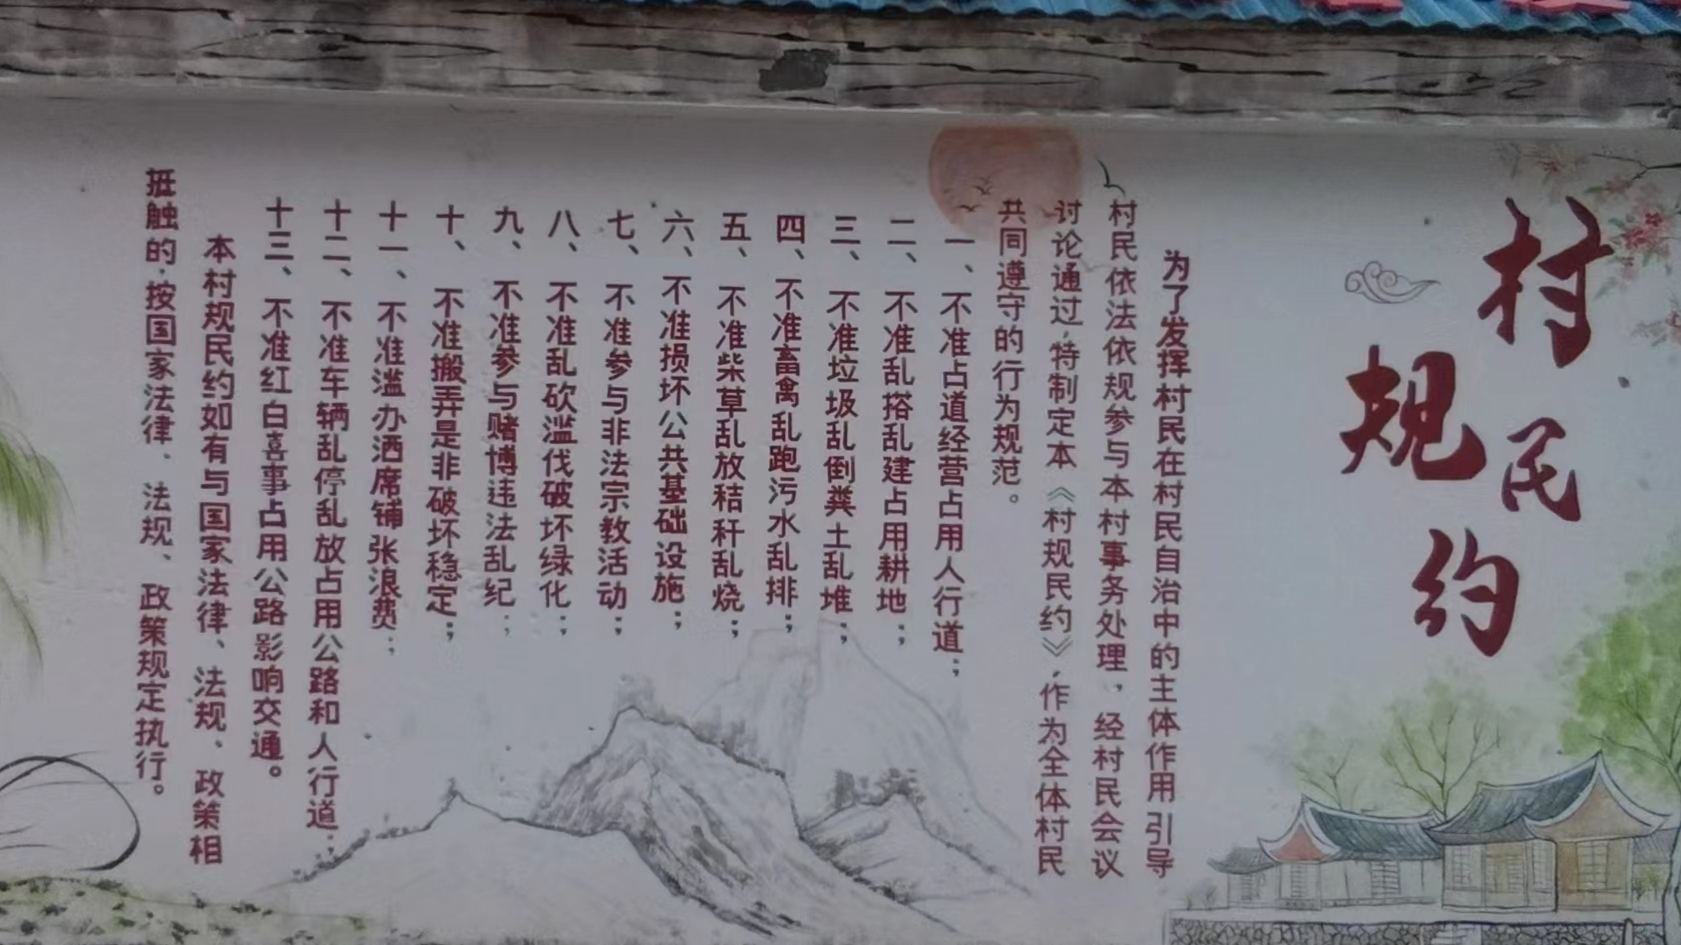 村规民约
为了发挥村民在村民自治中的主体作用引导
村民依法依规参与本村事务处理，经村民会议
讨论通过，特制定本《村规民约》，作为全体村民
共同遵守的行为规范。
一、不准占道经营占用人行道；
二、不准乱搭乱建占用耕地；
三、不准垃圾乱倒粪土乱堆；
四、不准畜禽乱跑污水乱排；
五、不准柴草乱放秸秆乱烧；
六、不准损坏公共基础设施；
七、不准参与非法宗教活动；
八、不准乱砍滥伐破坏绿化；
九、不准参与赌博违法乱纪；
十、不准搬弄是非破坏稳定；
十一、不准滥办洒席铺张浪费；
十二、不准车辆乱停乱放占用公路和人行道；
十三、不准红白喜事占用公路影响交通。
本村规民约如有与国家法律、法规、政策相
抵触的，按国家法律、法规、政策规定执行。